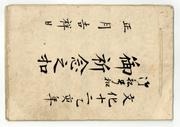 文化十二乙亥年
御祈念之扣
正月吉祥日